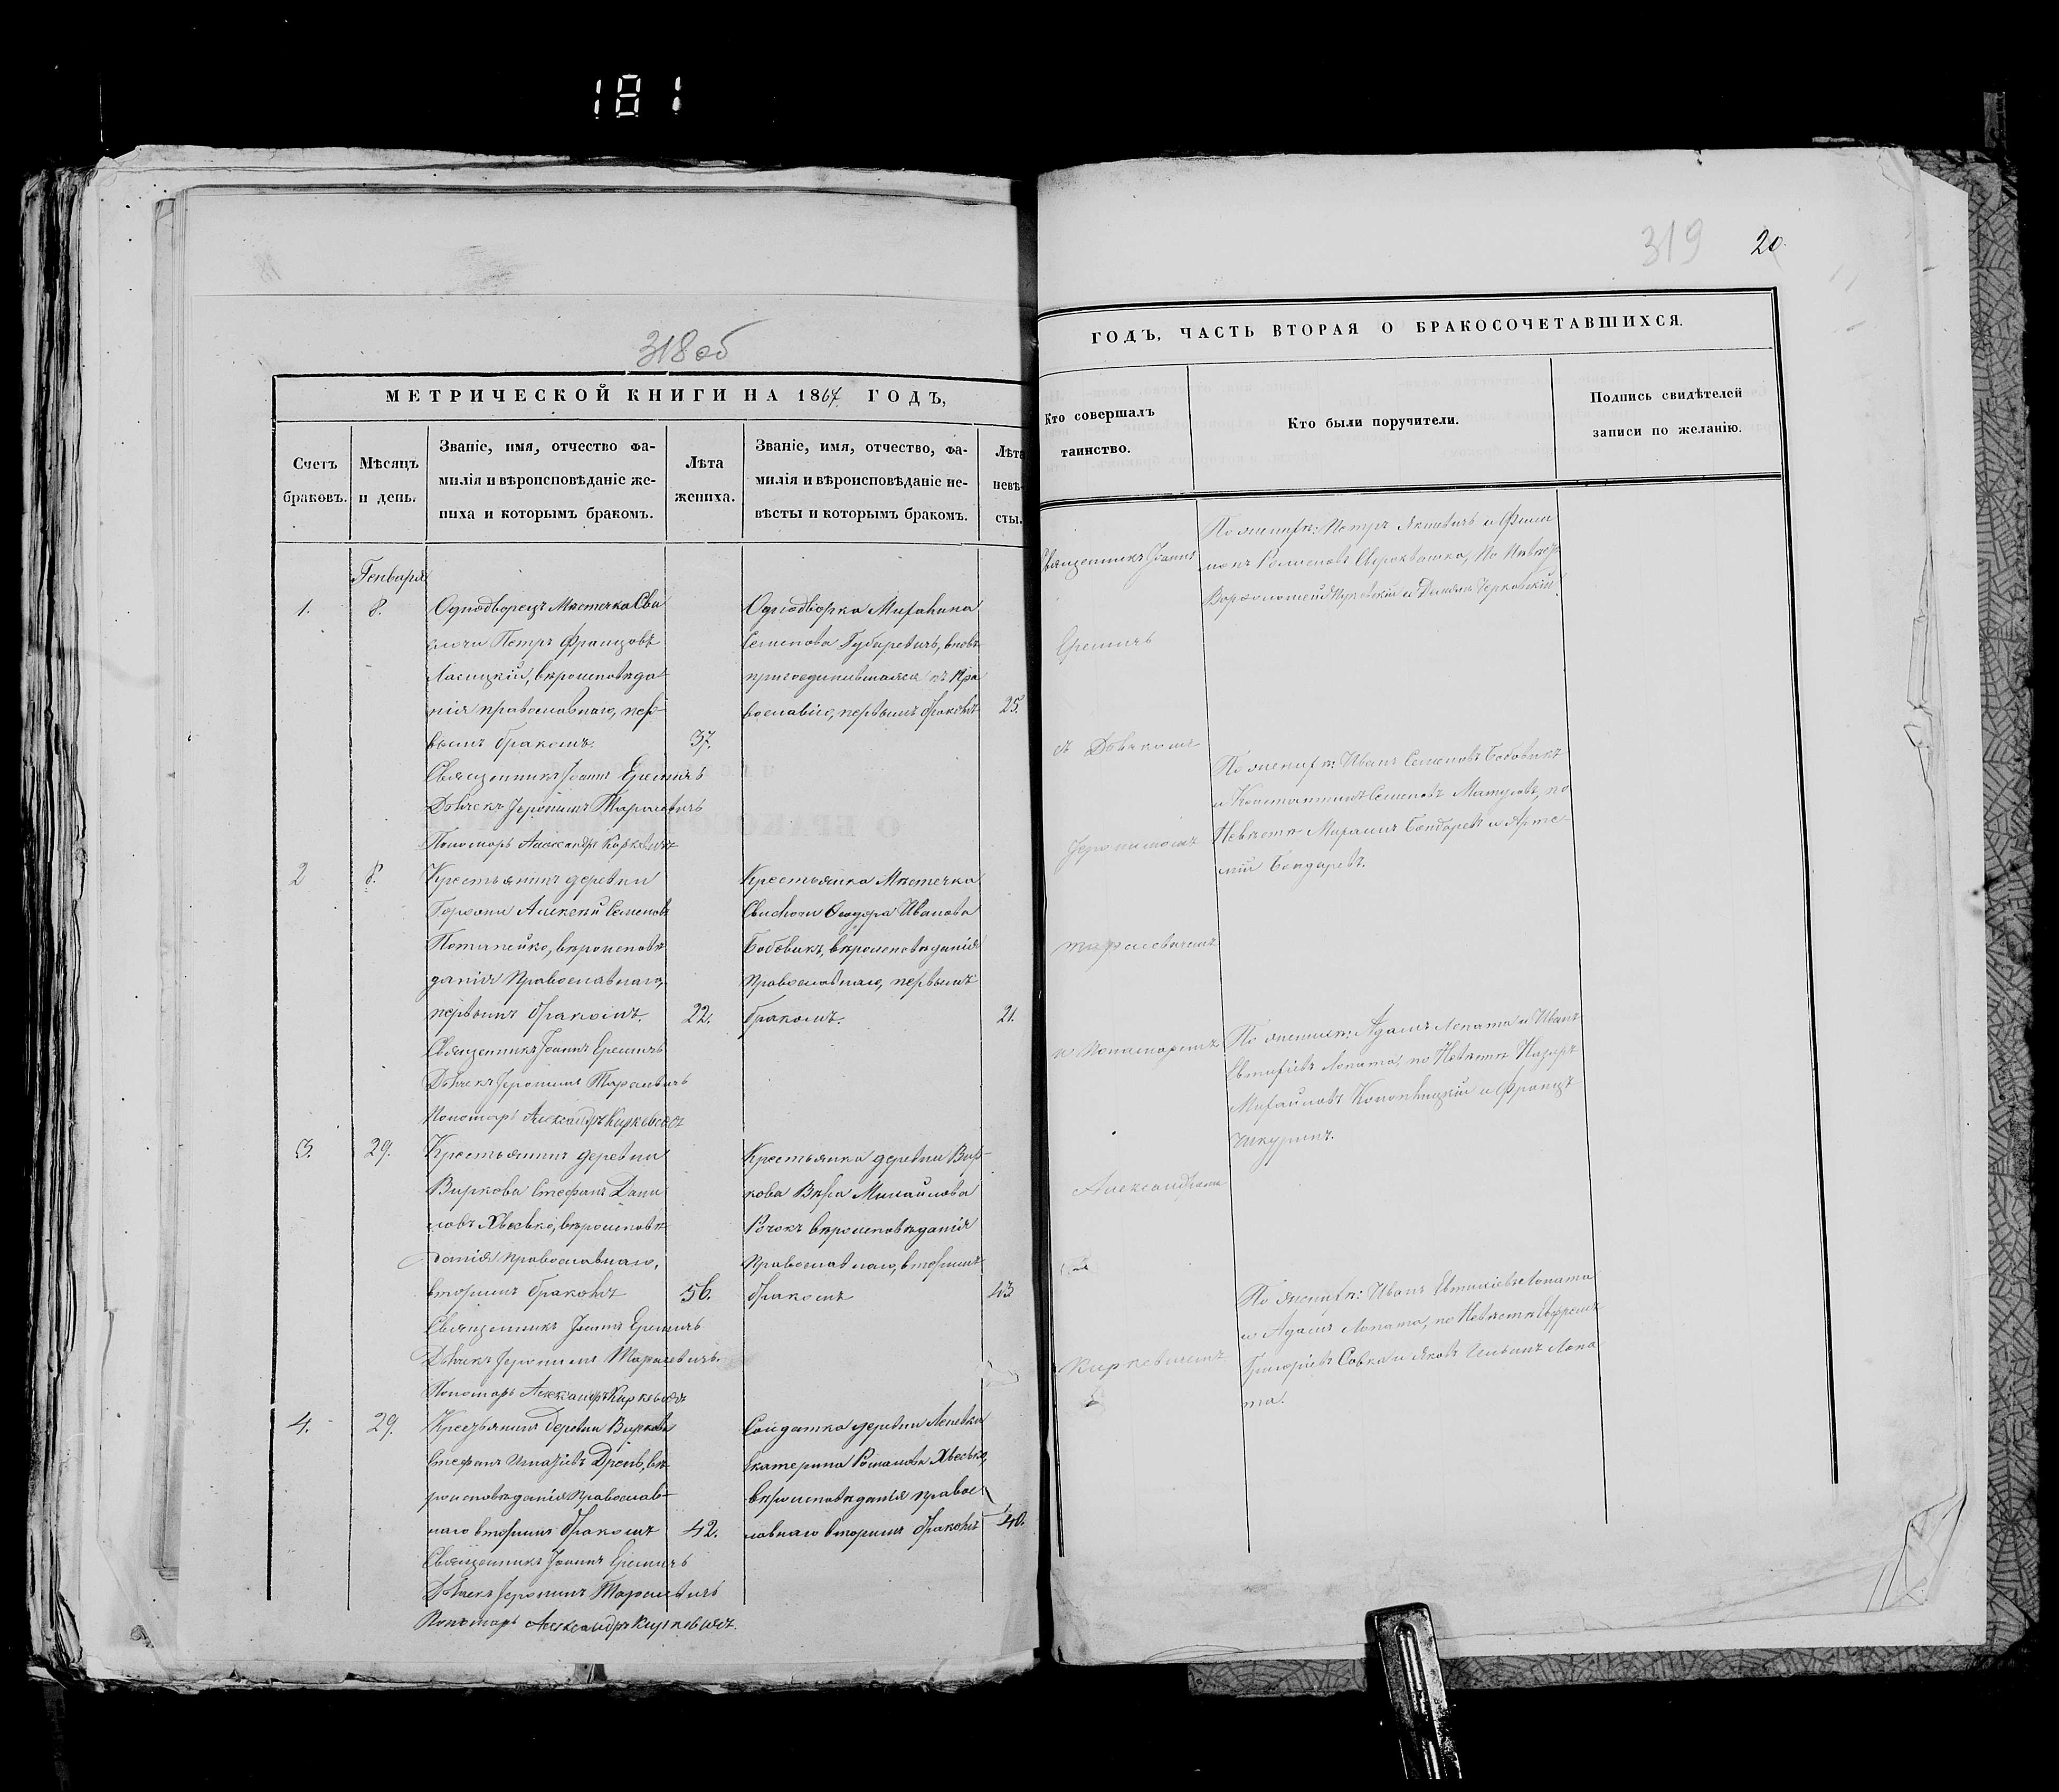 181
318 об
МЕТРИЧЕСКОЙ КНИГИ НА 1867 ГОДЪ,
Счетъ браковъ.
Мѣсяцъ и день.
Званіе, имя, отчество фа-
милія и вѣроисповѣданіе же-
ниха и которымъ бракомъ.
Лѣта жениха.
Званіе, имя, отчество, фа-
милія и вѣроисповѣданіе не-
вѣсты и которымъ бракомъ.
Лѣта невѣ-
сты.
Генваря
1.
8.
Однодворецъ Мѣстечка Сви
слочи Петръ Францовъ
Ласицкій, вѣроисповѣда
нія православнаго, пер
вымъ бракомъ.
37.
Однодворка
Семенова Губаревичъ, вновь
присоединившаяся къ Пра
вославію, первымъ бракомъ
25.
Священникъ Іоаннъ Еремичъ
Дьячекъ Іеронимъ Тарасевичъ
Пономарь Александръ Киркевичъ
2
8.
Крестьянинъ деревни
Алексѣй Семеновъ
Потапейко, вѣроисповѣ
данія Православнаго,
первымъ бракомъ.
22.
Крестьянка Мѣстечка
Свислочи Ѳеодора Иванова
Бобовикъ, вѣроисповѣданія
Православнаго, первымъ
бракомъ.
21.
Священникъ Іоаннъ Еремичъ
Дьячекъ Іеронимъ Тарасевичъ
Пономарь Александръ Киркевичъ
3.
29.
Крестьянинъ деревни
Виркова Стефанъ Дани
ловъ Хвесько, вѣроисповѣ
данія Православнаго,
вторымъ бракомъ
56.
Крестьянка деревни Вир-
кова Вѣра Михайлова
вѣроисповѣданія
Православнаго, вторымъ
бракомъ
43
Священникъ Іоаннъ Еремичъ
Дьячекъ Іеронимъ Тарасевичъ.
Пономарь Александръ Киркевичъ
4.
29.
Крестьянинъ деревни Виркова
Стефанъ Игнатіевъ вѣ
роисповѣданія Православ-
наго вторымъ бракомъ
42.
Солдатка деревни
Екатерина Романова Хвесько,
вѣроисповѣданія правос
лавнаго вторымъ бракомъ
40.
Священникъ Іоаннъ Еремичъ
Дьячекъ Іеронимъ Тарасевичъ
Пономарь Александръ Киркевичъ.
319
20
ГОДЪ, ЧАСТЬ ВТОРАЯ О БРАКОСОЧЕТАВШИХСЯ.
Кто совершалъ
таинство.
Кто были поручители.
Подпись свидѣтелей
записи по желанію.
Священникъ Іоаннъ
Еремичъ
съ Дьячкомъ
Іеронимомъ
Тарасевичемъ
и Пономаремъ
Александромъ
Киркевичемъ
По женихѣ: Петръ и
по Невѣстѣ
и Демьянъ
По женихѣ: Иванъ Семеновъ Бобовикъ
и Константинъ Семеновъ по
Невѣстѣ Бондаревъ и Арте
мій Бондаревъ.
По женихѣ: Адамъ Лопата и Иванъ
Евтихіевъ Лопата, по Невѣстѣ Назаръ
Михайловъ и Францъ
По женихѣ: Иванъ Евтихіевъ Лопата
и Адамъ Лопата, по Невѣстѣ Ефремъ
Григоріевъ Савка и Яковъ Ильинъ Лопа
та.